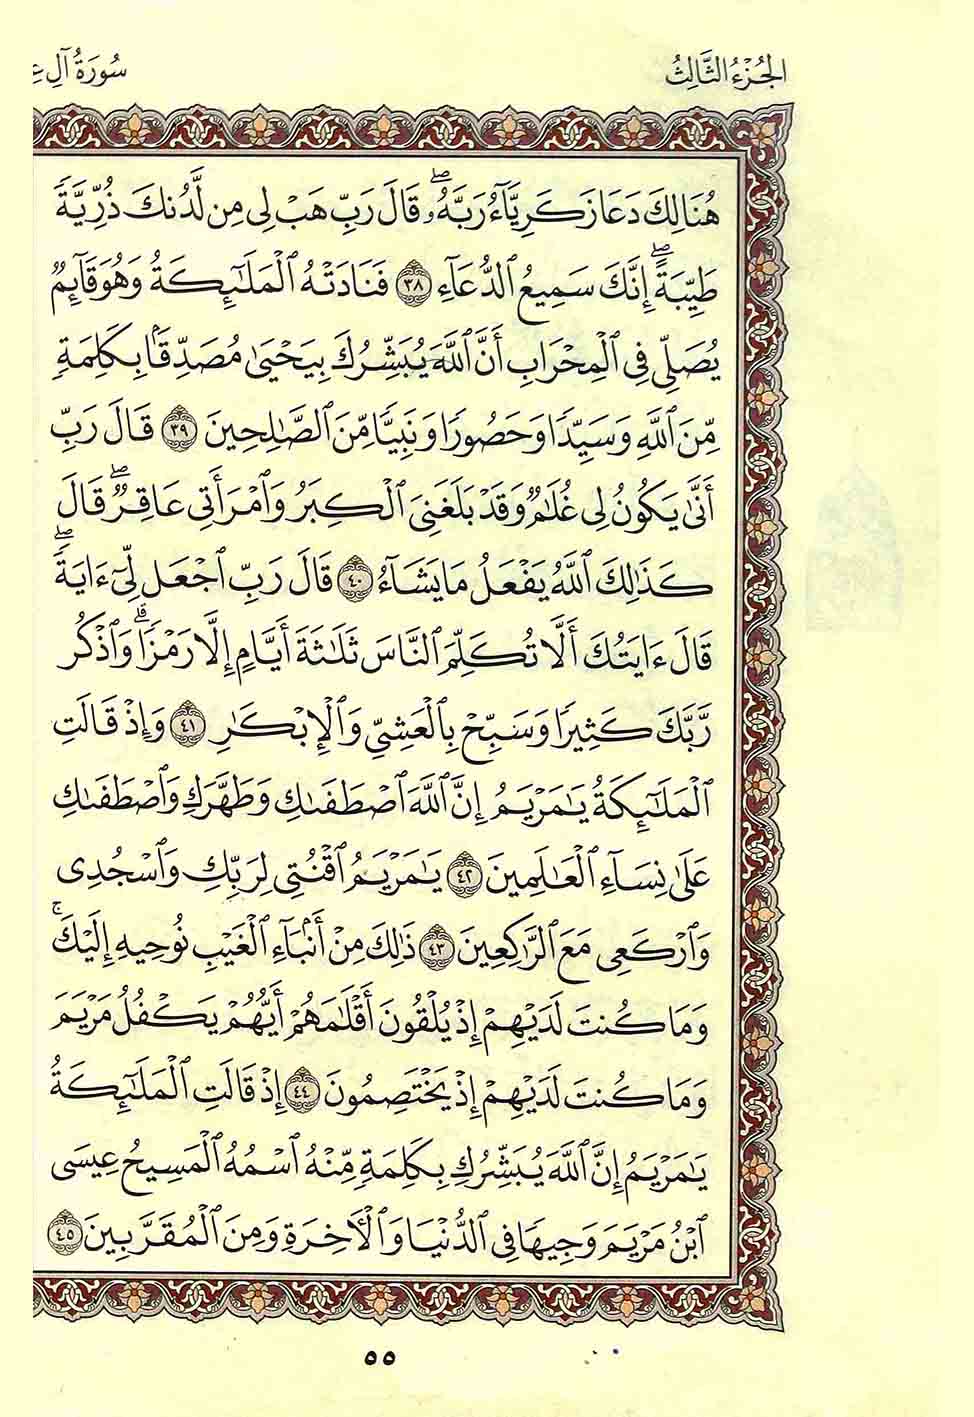 الجُزْءُ الثَّالِثُ
سُورَةُ آلِ
هُنَالِكَ دَعَا زَكَرِيَّآءُ رَبَّهُۥۖ قَالَ رَبِّ هَبْ لِى مِن لَّدُنكَ ذُرِّيَّةٗ
طَيِّبَةًۖ إِنَّكَ سَمِيعُ ٱلدُّعَآءِ ٣٨ فَنَادَتْهُ ٱلْمَلَٰٓئِكَةُ وَهُوَ قَآئِمٞ
يُصَلِّى فِى ٱلْمِحْرَابِ أَنَّ ٱللَّهَ يُبَشِّرُكَ بِيَحْيَىٰ مُصَدِّقَۢا بِكَلِمَةٖ
مِّنَ ٱللَّهِ وَسَيِّدٗا وَحَصُورٗا وَنَبِيّٗا مِّنَ ٱلصَّٰلِحِينَ ٣٩ قَالَ رَبِّ
أَنَّىٰ يَكُونُ لِى غُلَٰمٞ وَقَدْ بَلَغَنِىَ ٱلْكِبَرُ وَٱمْرَأَتِى عَاقِرٞۖ قَالَ
كَذَٰلِكَ ٱللَّهُ يَفْعَلُ مَا يَشَآءُ ٤٠ قَالَ رَبِّ ٱجْعَل لِّىٓ ءَايَةٗۖ
قَالَ ءَايَتُكَ أَلَّا تُكَلِّمَ ٱلنَّاسَ ثَلَٰثَةَ أَيَّامٍ إِلَّا رَمْزٗاۗ وَٱذْكُر
رَّبَّكَ كَثِيرٗا وَسَبِّحْ بِٱلْعَشِىِّ وَٱلْإِبْكَٰرِ ٤١ وَإِذْ قَالَتِ
ٱلْمَلَٰٓئِكَةُ يَٰمَرْيَمُ إِنَّ ٱللَّهَ ٱصْطَفَىٰكِ وَطَهَّرَكِ وَٱصْطَفَىٰكِ
عَلَىٰ نِسَآءِ ٱلْعَٰلَمِينَ ٤٢ يَٰمَرْيَمُ ٱقْنُتِى لِرَبِّكِ وَٱسْجُدِى
وَٱرْكَعِى مَعَ ٱلرَّٰكِعِينَ ٤٣ ذَٰلِكَ مِنْ أَنۢبَآءِ ٱلْغَيْبِ نُوحِيهِ إِلَيْكَۚ
وَمَا كُنتَ لَدَيْهِمْ إِذْ يُلْقُونَ أَقْلَٰمَهُمْ أَيُّهُمْ يَكْفُلُ مَرْيَمَ
وَمَا كُنتَ لَدَيْهِمْ إِذْ يَخْتَصِمُونَ ٤٤ إِذْ قَالَتِ ٱلْمَلَٰٓئِكَةُ
يَٰمَرْيَمُ إِنَّ ٱللَّهَ يُبَشِّرُكِ بِكَلِمَةٖ مِّنْهُ ٱسْمُهُ ٱلْمَسِيحُ عِيسَى
ٱبْنُ مَرْيَمَ وَجِيهٗا فِى ٱلدُّنْيَا وَٱلْأٓخِرَةِ وَمِنَ ٱلْمُقَرَّبِينَ ٤٥
٥٥